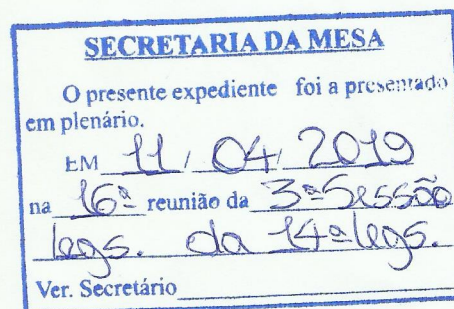 SECRETARIA DA MESA
O presente expediente foi a presentado
em plenário.
EM 11 / 04 / 2019
na 16ª reunião da 3ª Sessão
legs. da 14ª legs.
Ver. Secretário